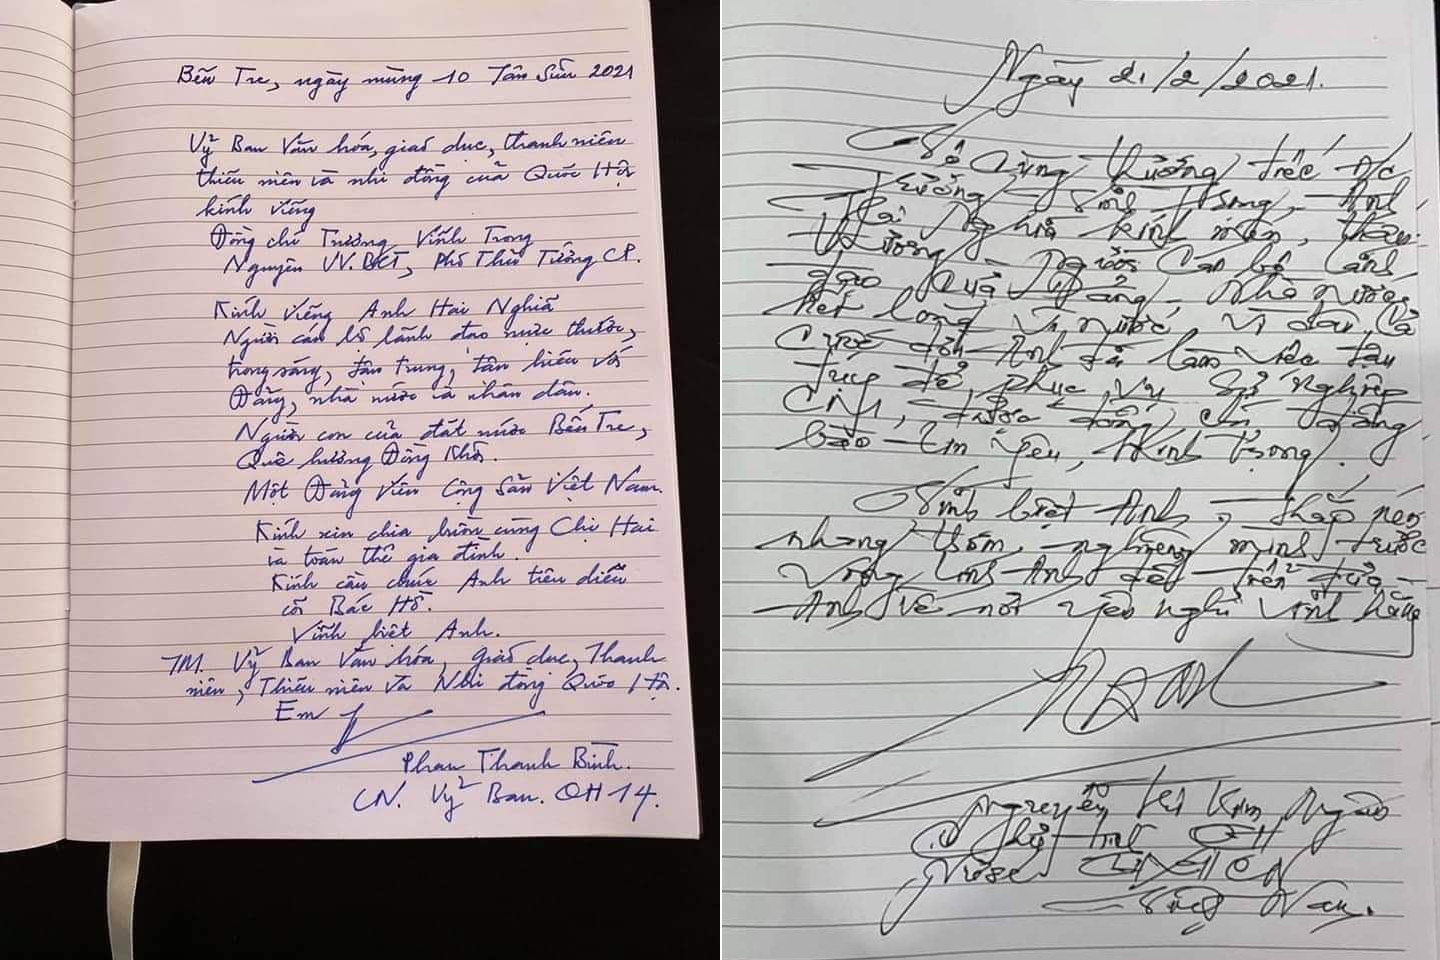 Bến Tre, ngày mùng 10 Tân Sửu 2021
Uỷ Ban Văn hóa, giáo dục, thanh niên
thiếu niên và nhi đồng của Quốc Hội
kính viếng
Đồng chí Trương Vĩnh Trọng
Nguyên UV.BCT, Phó Thủ Tướng CP.
Kính viếng Anh Hai Nghĩa
Người cán bộ lãnh đạo mực thước,
trong sáng, tận trung, tận hiếu với
Đảng, nhà nước và nhân dân.
Người con của đất nước Bến Tre,
Quê hương Đồng Khởi.
Một Đảng viên Cộng Sản Việt Nam.
Kính xin chia buồn cùng Chị Hai
và toàn thể gia đình.
Kính cẩn chúc Anh tiên diễu
cõi Bác Hồ.
Vĩnh biệt Anh.
TM. Uỷ Ban Văn hóa, Giáo dục, Thanh
niên, Thiếu niên và Nhi đồng Quốc Hội.
Em
Phan Thanh Bình.
CN. Uỷ Ban. QH 14.
Ngày 21/2/2021.
Vô cùng thương tiếc đ/c
Trương Vĩnh Trọng, Anh
Hai Nghĩa kính mến, thân
thương. Người Cán bộ Lãnh
đạo của Đảng, Nhà nước,
hết lòng vì nước, vì dân, Cả
Cuộc đời Anh đã làm việc tận
tụy để phục vụ sự nghiệp
CM, được đồng chí đồng
bào tin yêu, kính trọng.
Vĩnh biệt Anh, thắp nén
nhang thơm, nghiêng mình trước
Vong linh Anh để tiễn đưa
Anh về nơi yên nghỉ vĩnh hằng
Ngân
Nguyễn Thị Kim Ngân
Chủ tịch QH
Nước CHXHCN
Việt Nam.